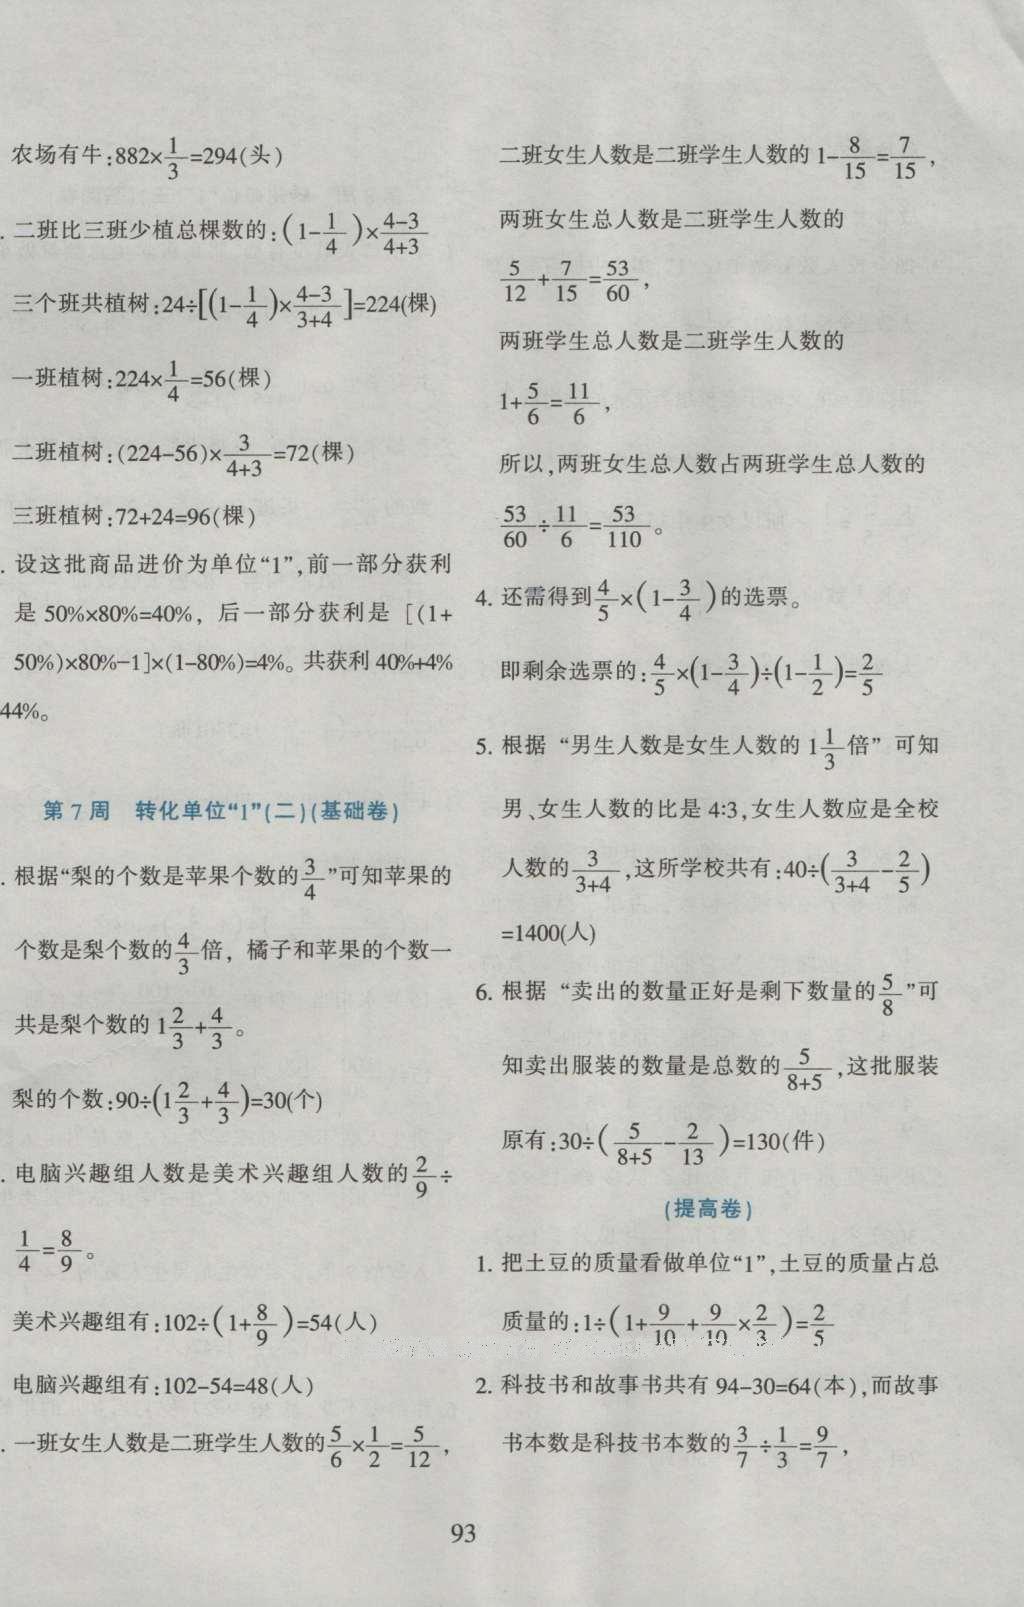 农场有牛:882×1/3=294(头)
. 二班比三班少植总棵数的:(1-1/4)×(4-3)/(4+3)
三个班共植树:24÷[(1-1/4)×(4-3)/(3+4)]=224(棵)
一班植树:224×1/4=56(棵)
二班植树:(224-56)×3/(4+3)=72(棵)
三班植树:72+24=96(棵)
. 设这批商品进价为单位“1”,前一部分获利
是 50%×80%=40%, 后一部分获利是 [(1+
50%)×80%-1]×(1-80%)=4%。共获利 40%+4%
44%。
第 7 周 转化单位“1”(二)(基础卷)
. 根据“梨的个数是苹果个数的3/4”可知苹果的
个数是梨个数的4/3倍, 橘子和苹果的个数一
共是梨个数的 1 2/3+4/3。
梨的个数:90÷(1 2/3+4/3)=30(个)
. 电脑兴趣组人数是美术兴趣组人数的2/9÷
1/4=8/9。
美术兴趣组有:102÷(1+8/9)=54(人)
电脑兴趣组有:102-54=48(人)
. 一班女生人数是二班学生人数的5/6×1/2=5/12,
二班女生人数是二班学生人数的 1-8/15=7/15,
两班女生总人数是二班学生人数的
5/12+7/15=53/60,
两班学生总人数是二班学生人数的
1+5/6=11/6,
所以,两班女生总人数占两班学生总人数的
53/60÷11/6=53/110。
4. 还需得到4/5×(1-3/4)的选票。
即剩余选票的:4/5×(1-3/4)÷(1-1/2)=2/5
5. 根据 “男生人数是女生人数的 1 1/3倍” 可知
男、女生人数的比是 4:3,女生人数应是全校
人数的3/(3+4),这所学校共有:40÷(3/(3+4)-2/5)
=1400(人)
6. 根据 “卖出的数量正好是剩下数量的5/8”可
知卖出服装的数量是总数的5/(8+5),这批服装
原有:30÷(5/(8+5)-2/13)=130(件)
(提高卷)
1. 把土豆的质量看做单位“1”,土豆的质量占总
质量的:1÷(1+9/10+9/10×2/3)=2/5
2. 科技书和故事书共有 94-30=64(本),而故事
书本数是科技书本数的3/7÷1/3=9/7,
93